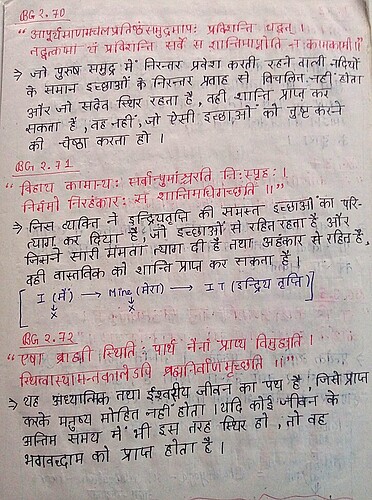 BG 2.70
“आपूर्यमाणमचलप्रतिष्ठंसमुद्रमापः प्रविशन्ति यद्वत् ।
तद्वत्कामा यं प्रविशन्ति सर्वे स शान्तिमाप्नोति न कामकामी ॥”
⇒ जो पुरुष समुद्र में निरन्तर प्रवेश करती रहने वाली नदियों
के समान इच्छाओं के निरन्तर प्रवाह से विचलित नहीं होता
और जो सदैव स्थिर रहता है, वही शान्ति प्राप्त कर
सकता है, वह नहीं, जो ऐसी इच्छाओं को तुष्ट करने
की चेष्ठा करता हो ।
BG 2.71
“विहाय कामान्यः सर्वान्पुमांश्चरति निःस्पृहः ।
निर्ममो निरहंकारः स शान्तिमधिगच्छति ॥”
⇒ जिस व्यक्ति ने इन्द्रियतृप्ति की समस्त इच्छाओं का परि-
त्याग कर दिया है, जो इच्छाओं से रहित रहता है और
जिसने सारी ममता त्याग दी है तथा अहंकार से रहित है,
वही वास्तविक को शान्ति प्राप्त कर सकता है ।
[ I (मैं) → Mine (मेरा) → IT (इन्द्रिय तृप्ति) ]
x x
BG 2.72
“एषा ब्राह्मी स्थितिः पार्थ नैनां प्राप्य विमुह्यति ।
स्थित्वास्यामन्तकालेऽपि ब्रह्मनिर्वाणमृच्छति ॥”
⇒ यह अध्यात्मिक तथा ईश्वरीय जीवन का पथ है, जिसे प्राप्त
करके मनुष्य मोहित नहीं होता । यदि कोई जीवन के
अन्तिम समय में भी इस तरह स्थिर हो, तो वह
भगवद्धाम को प्राप्त होता है ।